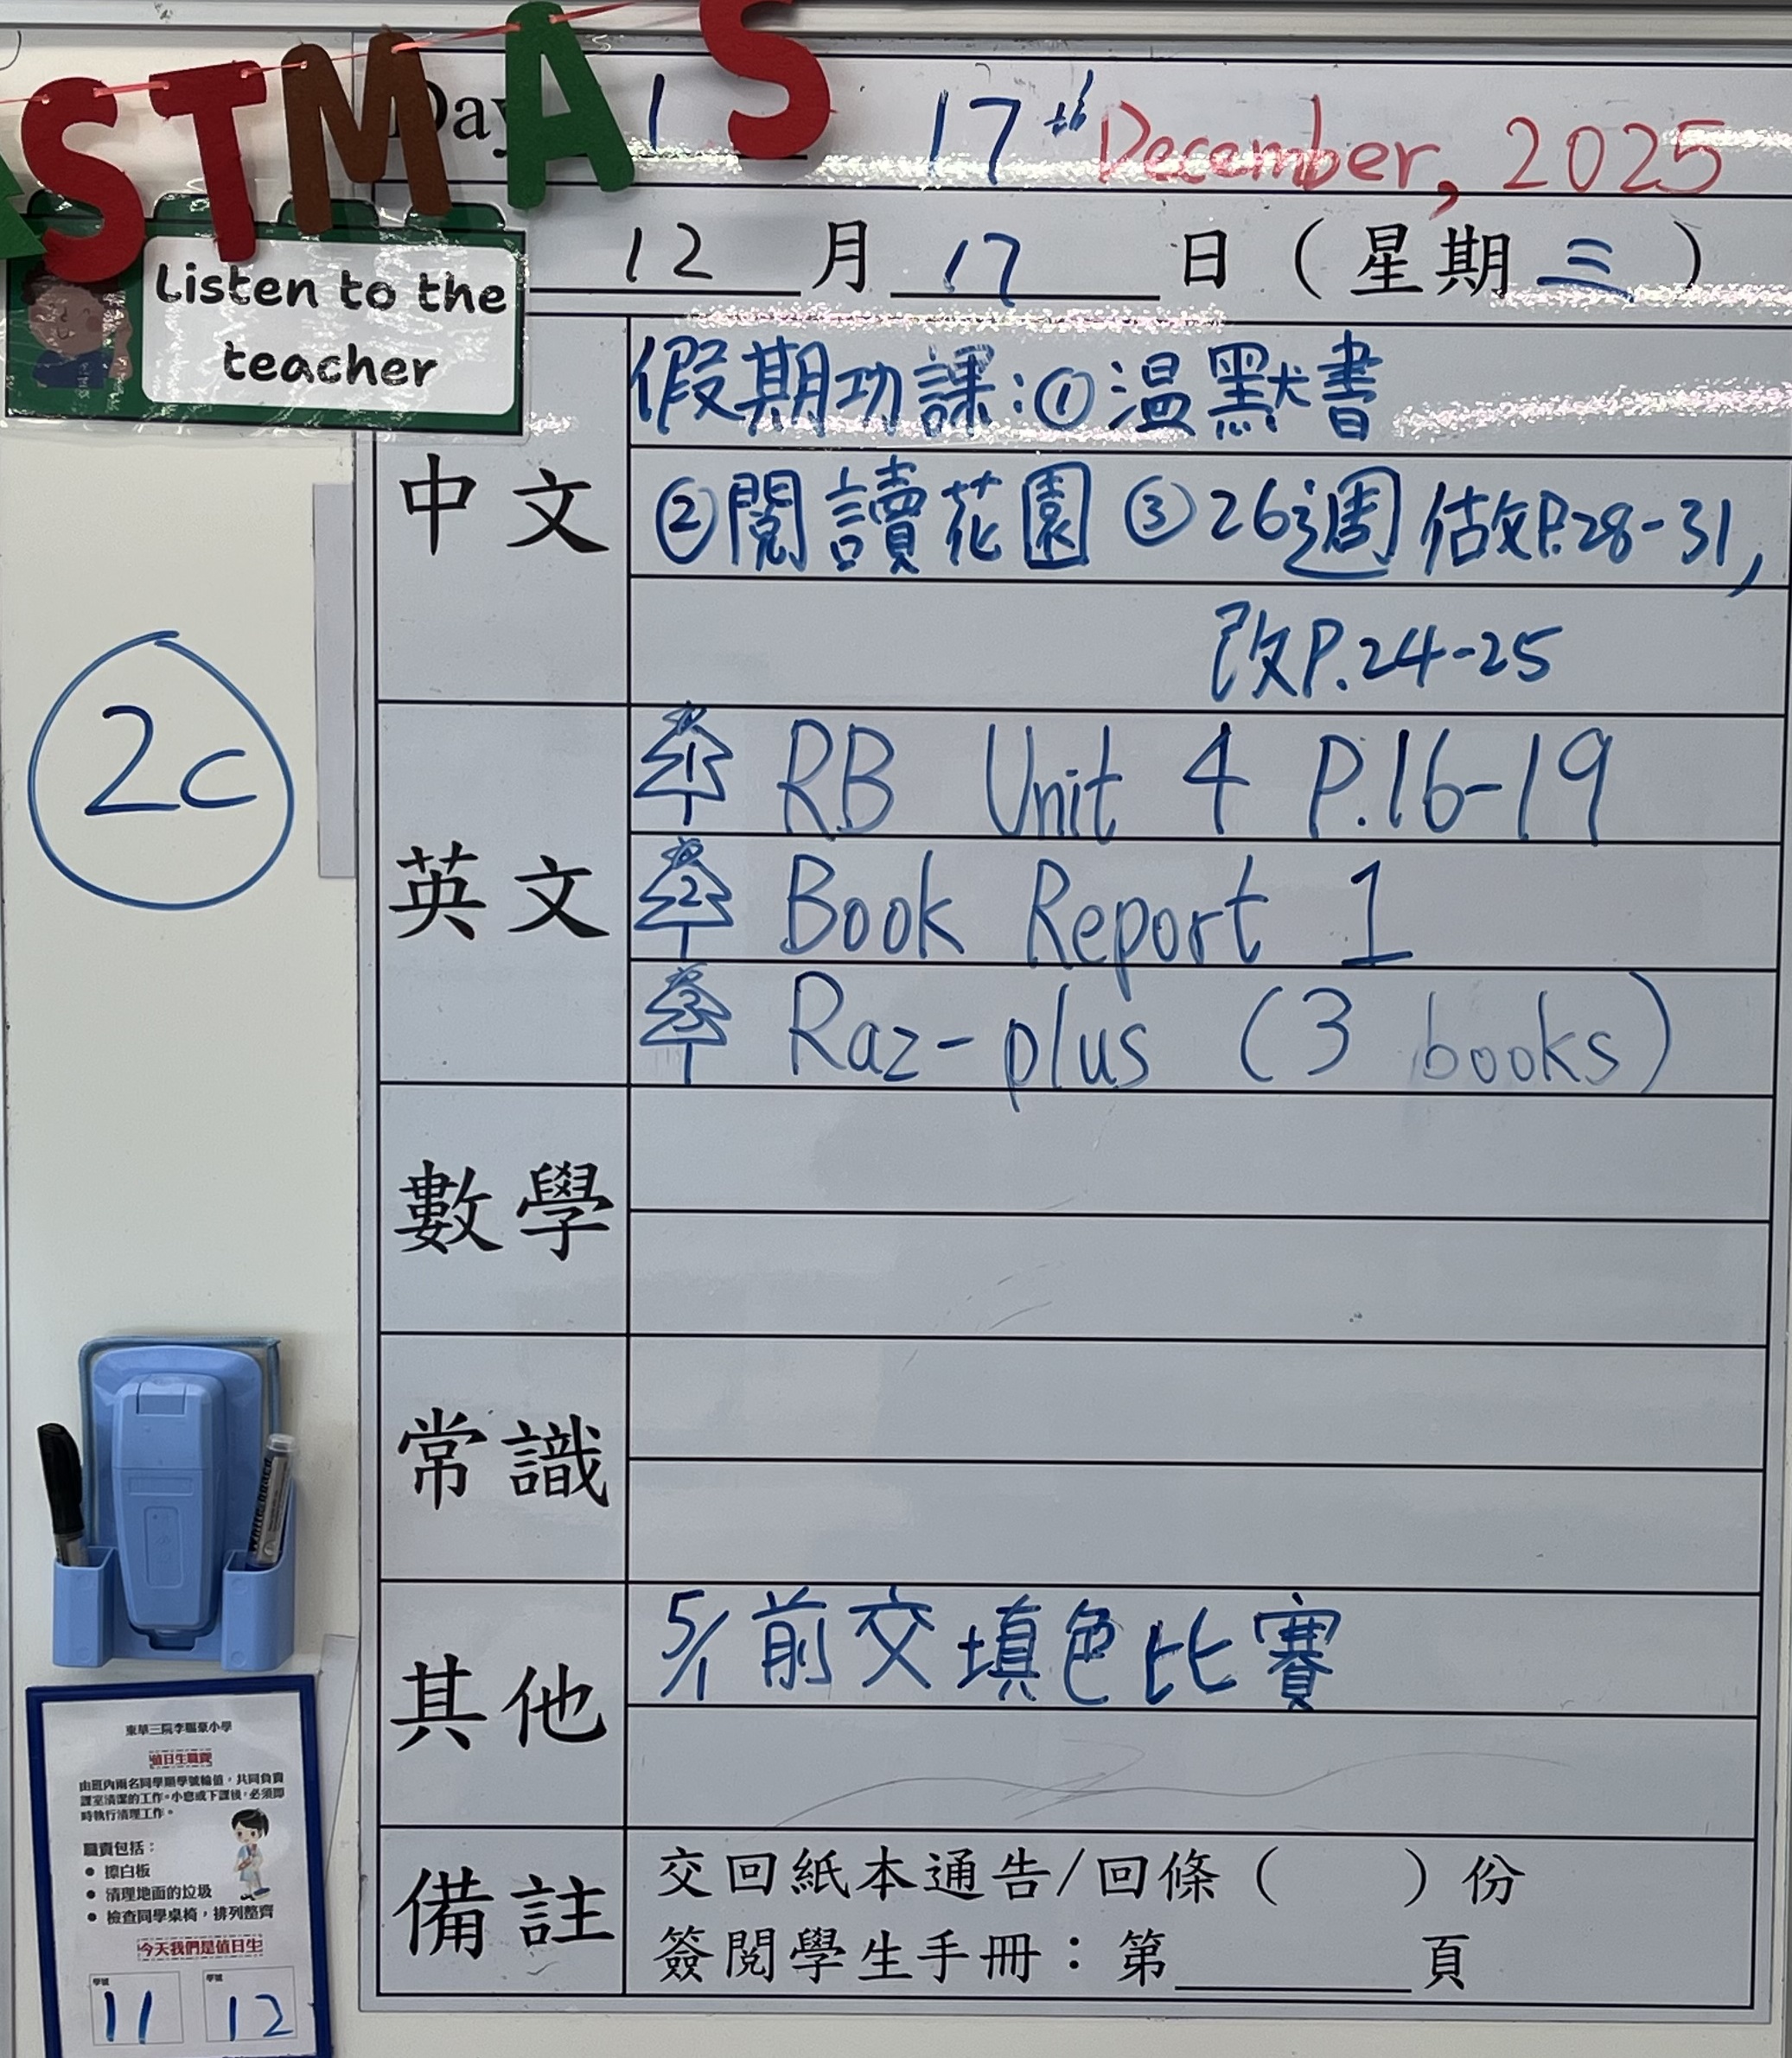 STMAS
Day 1 17th December, 2025
12 月 17 日 ( 星期 三 )
Listen to the
teacher
中文
假期功課:①溫默書
②閱讀花園 ③26週 做P.28-31,
改P.24-25
2c
英文
1 RB Unit 4 P.16-19
2 Book Report 1
3 Raz-plus (3 books)
數學
常識
其他
5/1 前交填色比賽
備註
交回紙本通告/回條 ( ) 份
簽閱學生手冊：第 頁
Whiteboard
值日生職責
由班內兩名同學順學號輪值，共同負責
課室清潔的工作。小息或下課後，必須即
時執行清理工作。
職責包括：
● 擦白板
● 清理地面的垃圾
● 檢查同學桌椅，排列整齊
今天我們是值日生
學號 學號
11 12